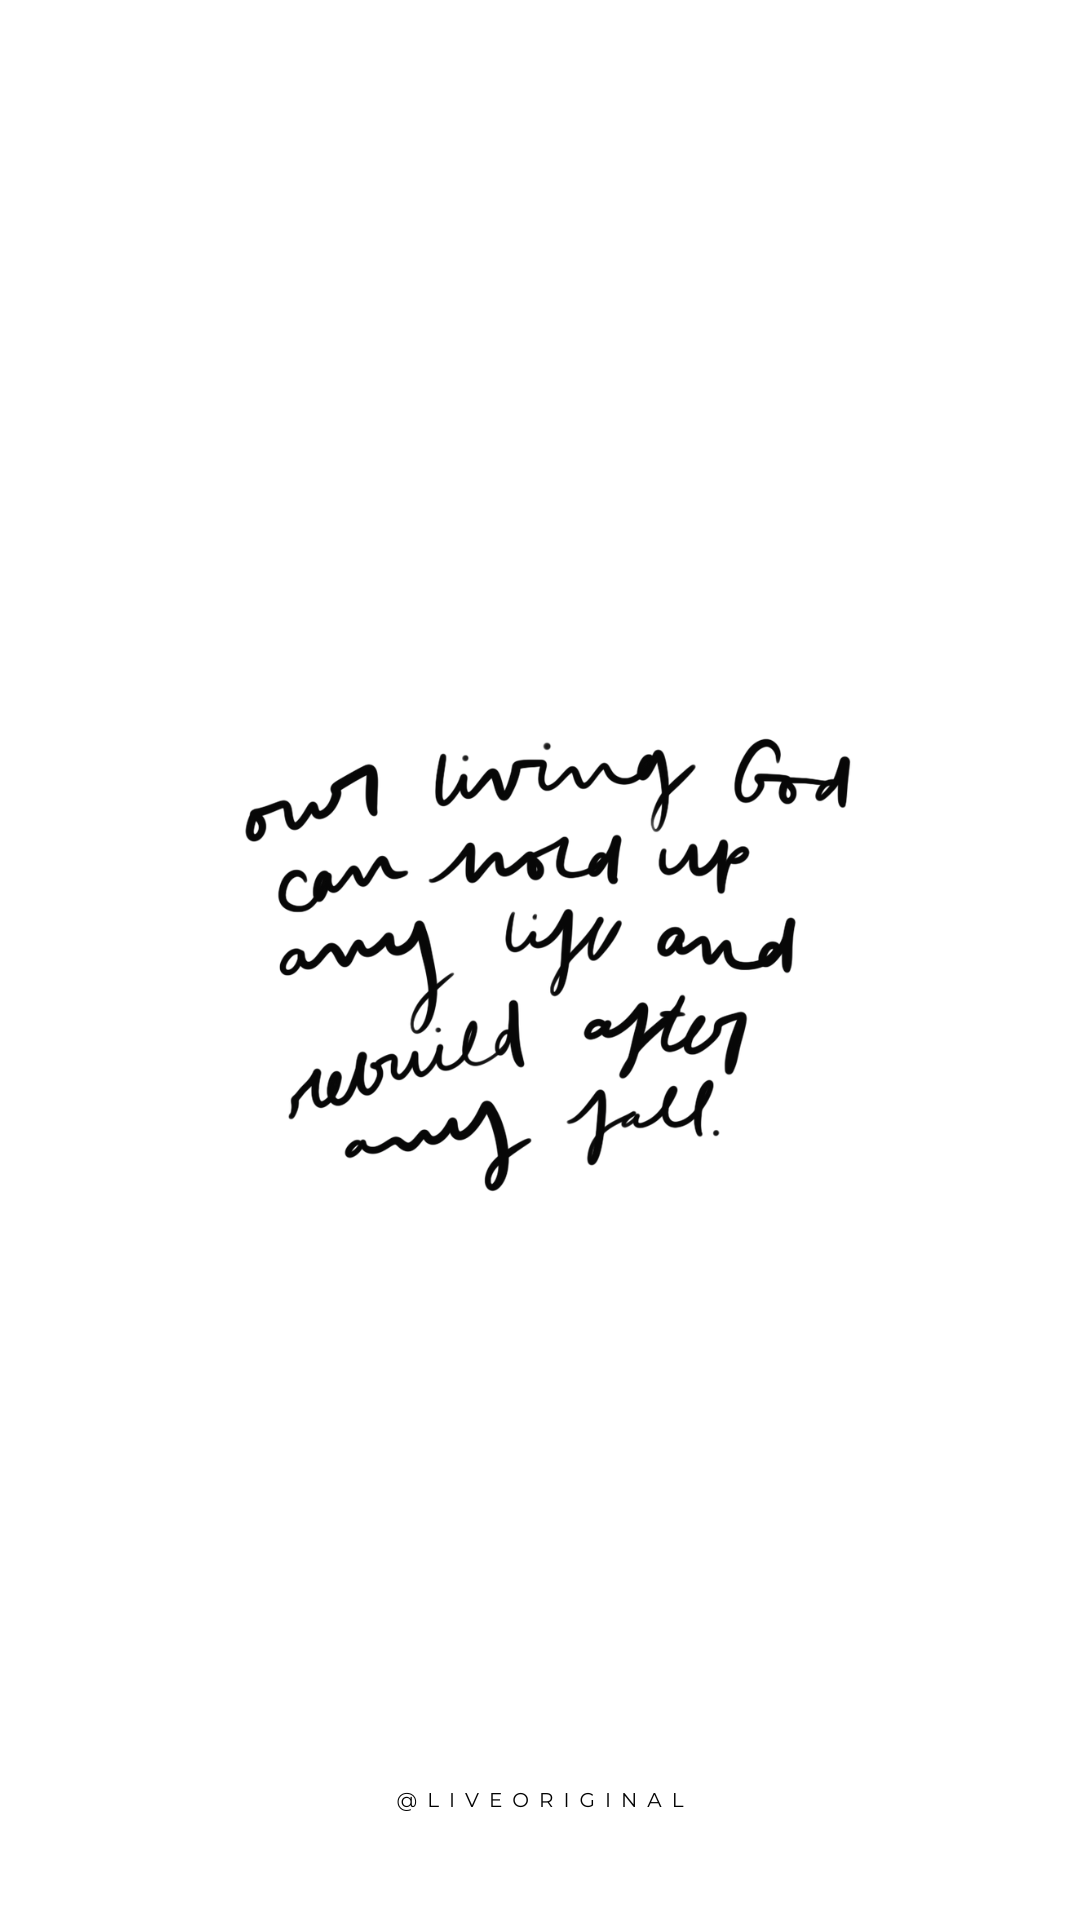 our living God
can hold up
any life and
rebuild after
any fall.
@LIVEORIGINAL